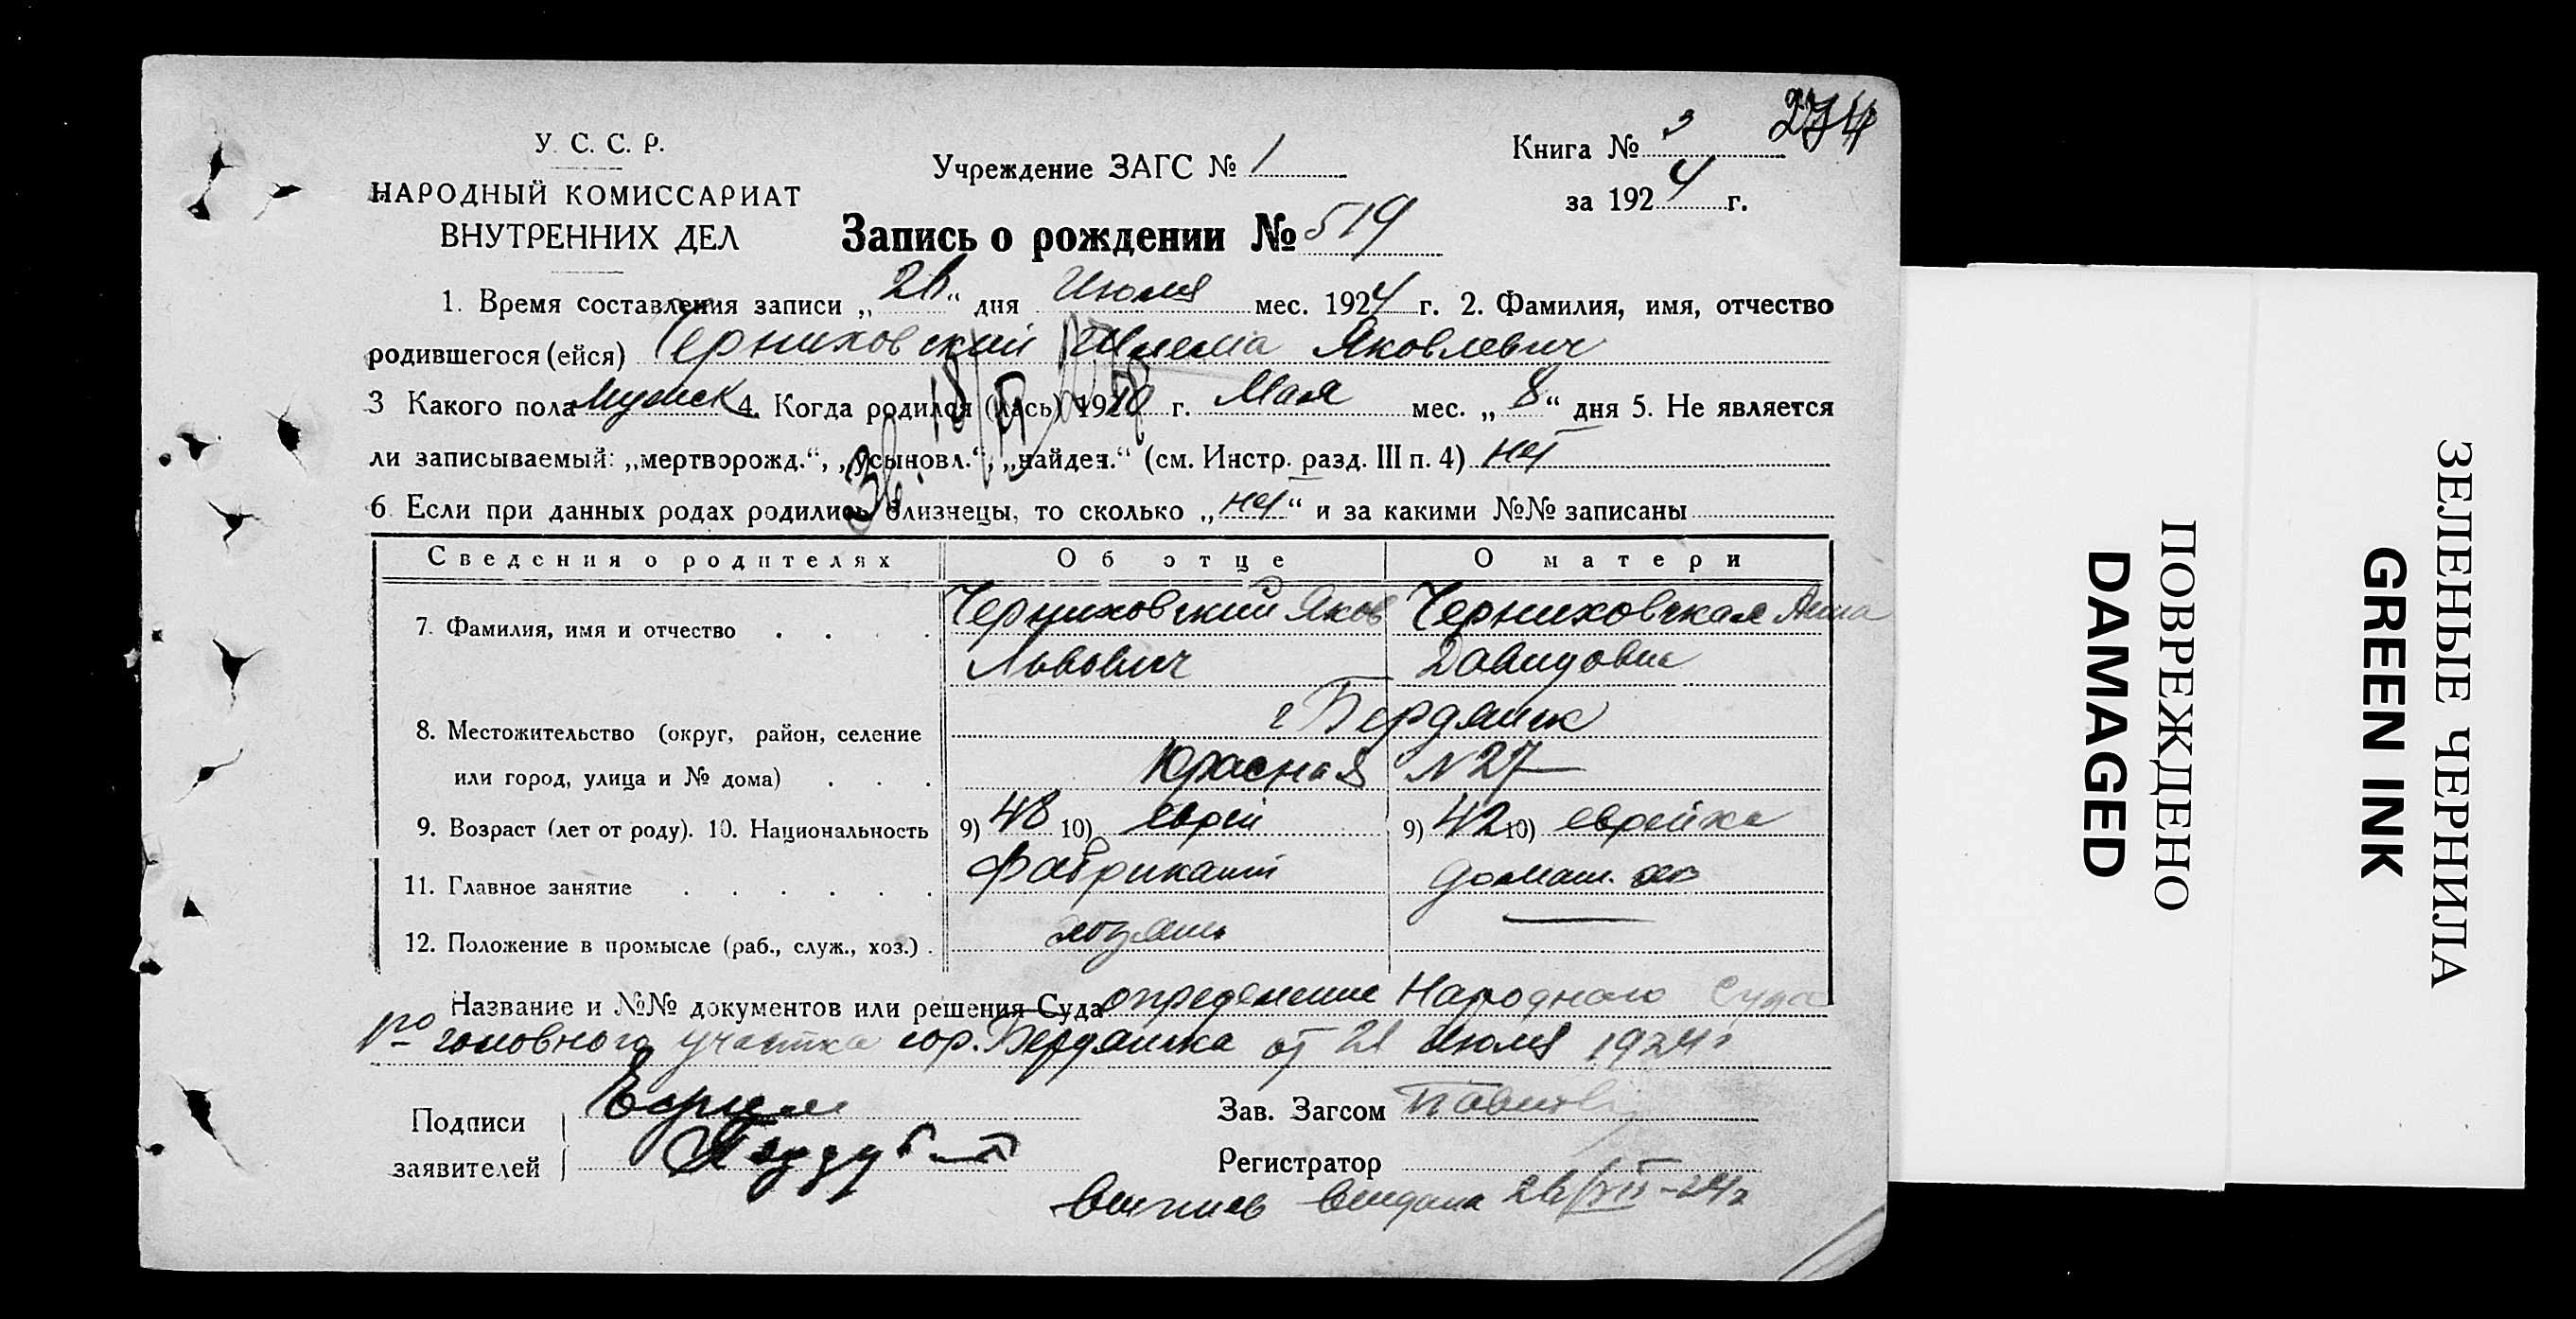 У. С. С. Р.
НАРОДНЫЙ КОМИССАРИАТ
ВНУТРЕННИХ ДЕЛ
Учреждение ЗАГС № 1
Книга № 3
274
за 1924 г.
Запись о рождении № 519
1. Время составления записи „26“ дня Июля мес. 1924 г. 2. Фамилия, имя, отчество
родившегося (ейся) Черниховский Яковлевич
3 Какого пола Мужск 4. Когда родился (лась) г. Мая мес. „8“ дня 5. Не является
ли записываемый: „мертворожд.“, „усыновл.“, „найден.“ (см. Инстр. разд. III п. 4) нет
6. Если при данных родах родились близнецы, то сколько „нет“ и за какими №№ записаны
Сведения о родителях Об отце О матери
7. Фамилия, имя и отчество Черниховский Яков Львович Черниховская Анна Давидовна
8. Местожительство (округ, район, селение г Бердянск
или город, улица и № дома) Красная N 27
9. Возраст (лет от роду). 10. Национальность 9) 48 10) еврей 9) 42 10) еврейка
11. Главное занятие Фабрикант домаш. хоз
12. Положение в промысле (раб., служ., хоз.)
Название и №№ документов или решения Суда определение Народного Суда
1го участка гор. Бердянска от 21 Июля 1924 г
Подписи
заявителей
Зав. Загсом
Регистратор
Выпись выдана 26/VII-24 г
ПОВРЕЖДЕНО
DAMAGED
ЗЕЛЕНЫЕ ЧЕРНИЛА
GREEN INK